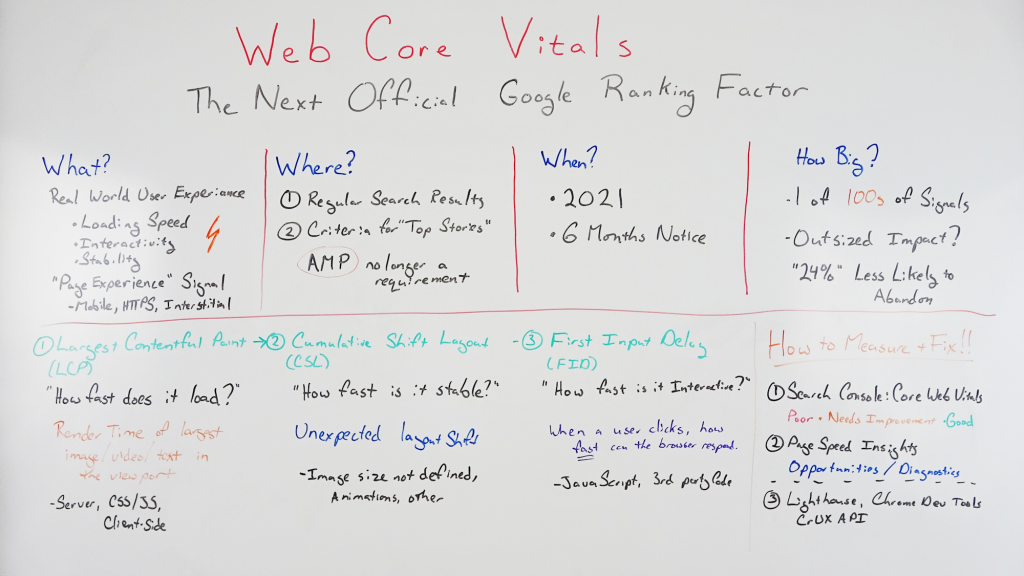 Web Core Vitals
The Next Official Google Ranking Factor
What?
Real World User Experience
• Loading Speed
• Interactivity
• Stability
"Page Experience" Signal
- Mobile, HTTPS, Interstitial
Where?
① Regular Search Results
② Criteria for "Top Stories"
AMP no longer a
requirement
When?
• 2021
• 6 Months Notice
How Big?
- 1 of 100s of Signals
- Outsized Impact?
"24%" Less Likely to
Abandon
① Largest Contentful Paint →
(LCP)
"How fast does it load?"
Render Time of largest
image/video/text in
the viewport
- Server, CSS/JS,
Client-Side
② Cumulative Shift Layout
(CSL)
"How fast is it stable?"
Unexpected layout Shifts
- Image size not defined,
Animations, other
- ③ First Input Delay
(FID)
"How fast is it Interactive?"
When a user clicks, how
fast can the browser respond.
- JavaScript, 3rd party Code
How to Measure + Fix!!
① Search Console: Core Web Vitals
Poor • Needs Improvement • Good
② Page Speed Insights
Opportunities / Diagnostics
③ Lighthouse, Chrome Dev Tools
CrUX API